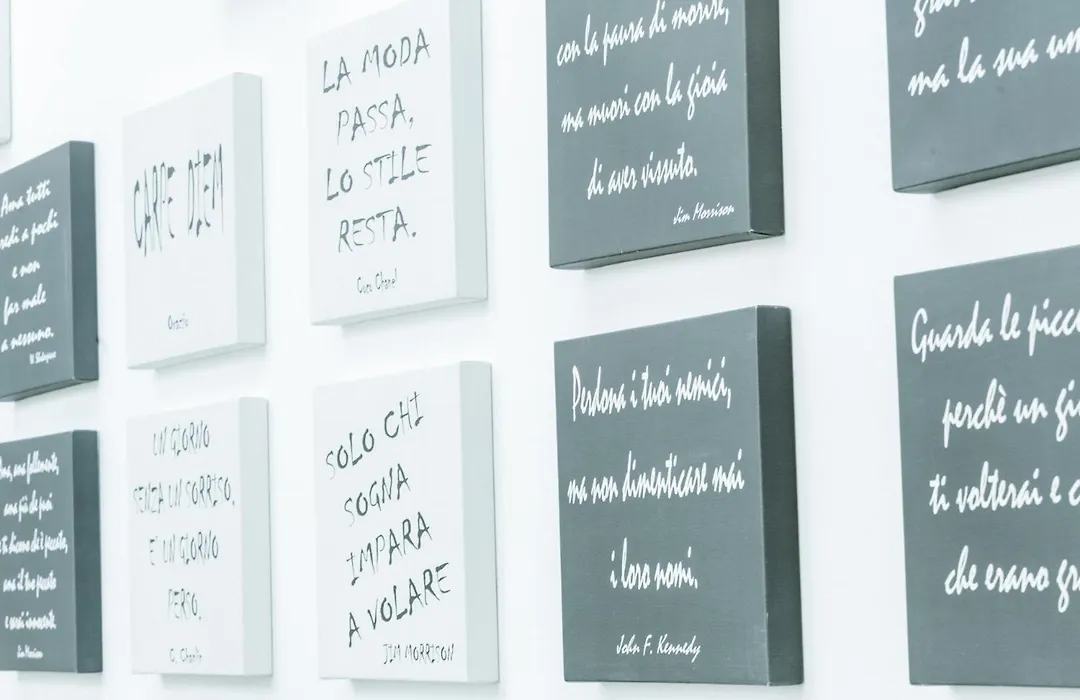 Ama tutti
credi a pochi
e non
far male
a nessuno.
W. Shakespeare
CARPE DIEM
Orazio
LA MODA
PASSA,
LO STILE
RESTA.
Coco Chanel
con la paura di morire,
ma muori con la gioia
di aver vissuto.
Jim Morrison
ma la sua un
ama, ama follemente,
ama più che puoi
e ti dicono che è peccato,
ama il tuo peccato
e sarai innocente.
Jim Morrison
UN GIORNO
SENZA UN SORRISO,
E' UN GIORNO
PERSO.
C. Chaplin
SOLO CHI
SOGNA
IMPARA
A VOLARE
JIM MORRISON
Perdona i tuoi nemici,
ma non dimenticare mai
i loro nomi.
John F. Kennedy
Guarda le picco
perchè un gio
ti volterai e c
che erano gr